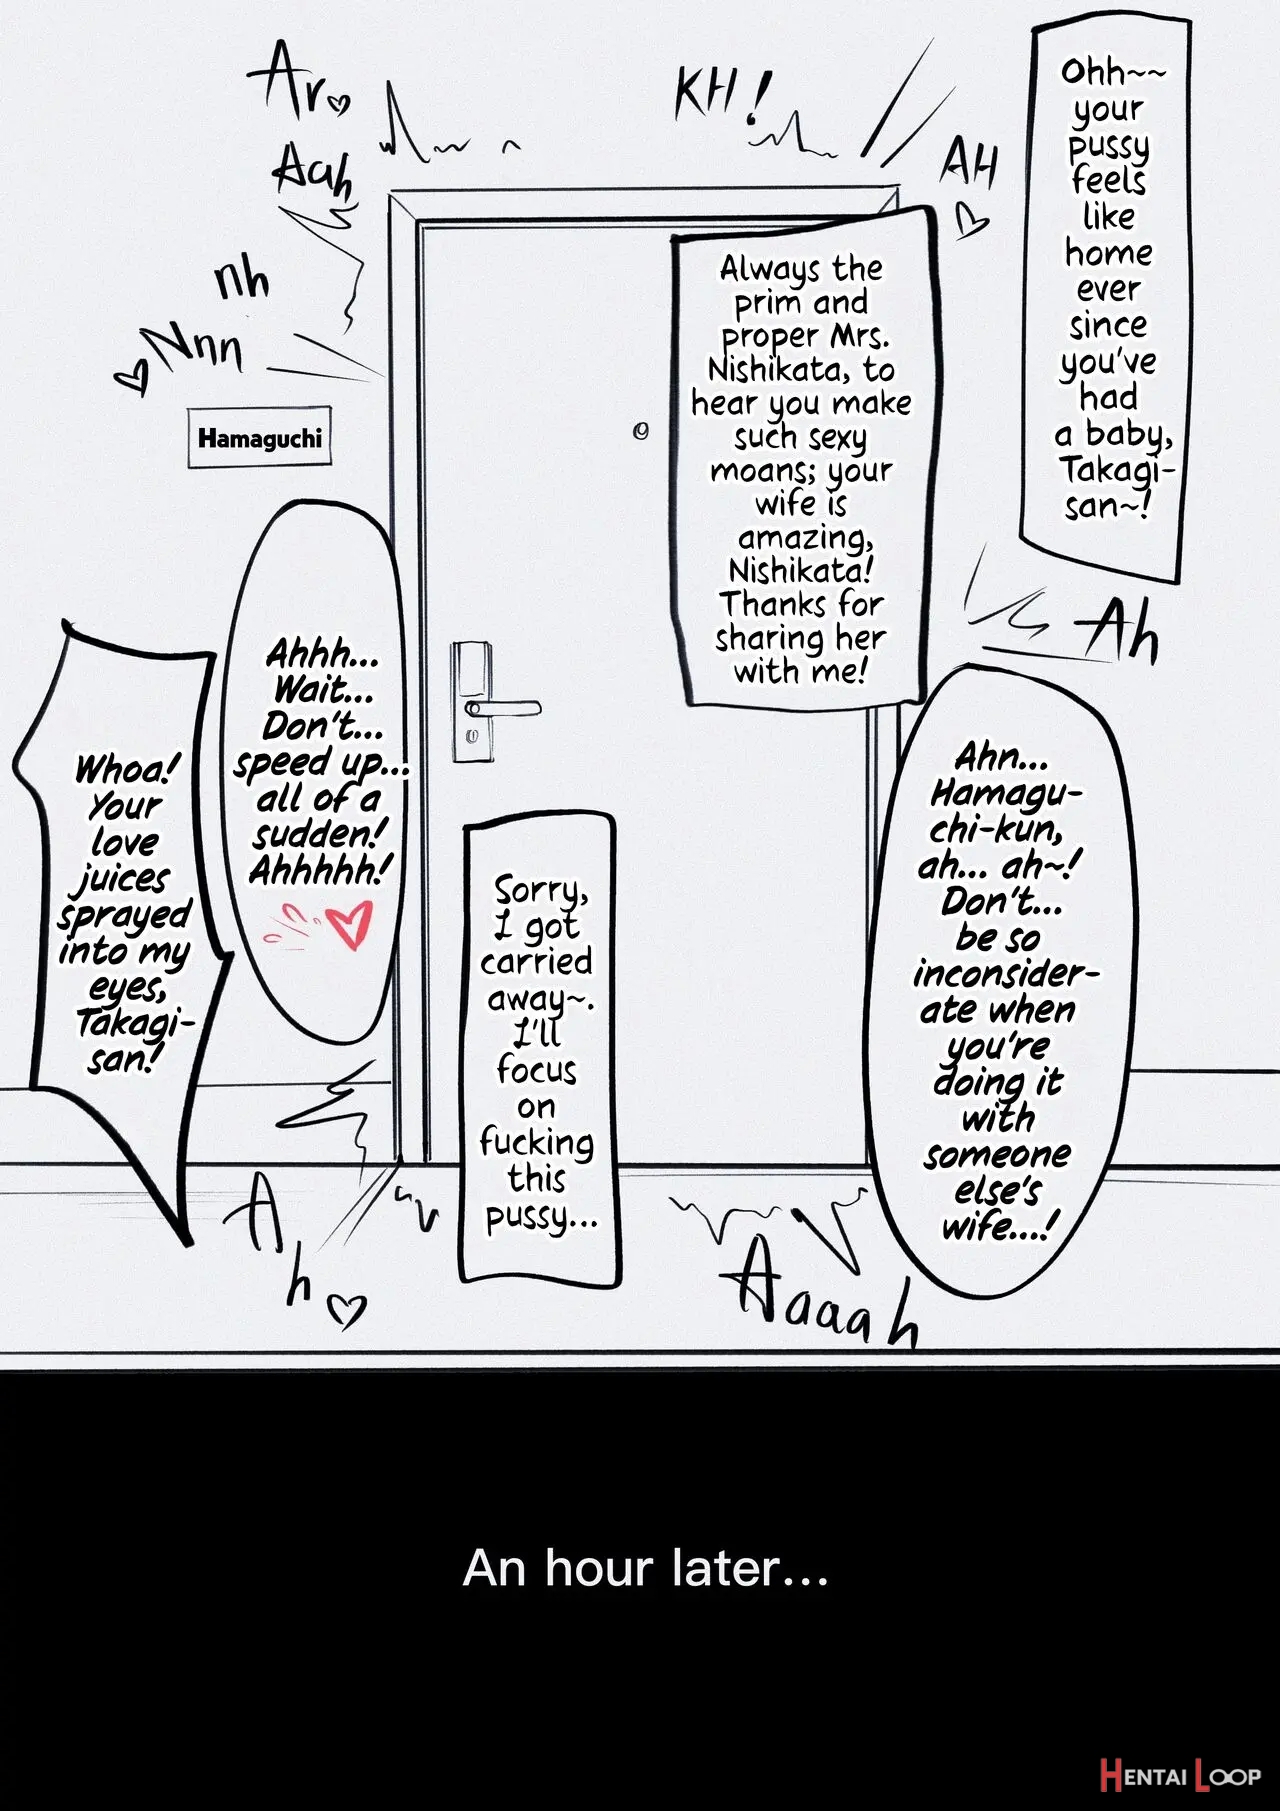 Ohh~~
your
pussy
feels
like
home
ever
since
you've
had
a baby,
Takagi-
san~!
Always the
prim and
proper Mrs.
Nishikata, to
hear you make
such sexy
moans; your
wife is
amazing,
Nishikata!
Thanks for
sharing her
with me!
KH!
AH
Ar
Aah
nh
Nnn
Hamaguchi
Ah
Ahn...
Hamagu-
chi-kun,
ah... ah~!
Don't...
be so
inconsider-
ate when
you're
doing it
with
someone
else's
wife...!
Sorry,
I got
carried
away~.
I'll
focus
on
fucking
this
pussy...
Ahhh...
Wait...
Don't...
speed up...
all of a
sudden!
Ahhhhh!
Whoa!
Your
love
juices
sprayed
into my
eyes,
Takagi-
san!
Ah
Aaaah
An hour later...
HENTAI LOOP